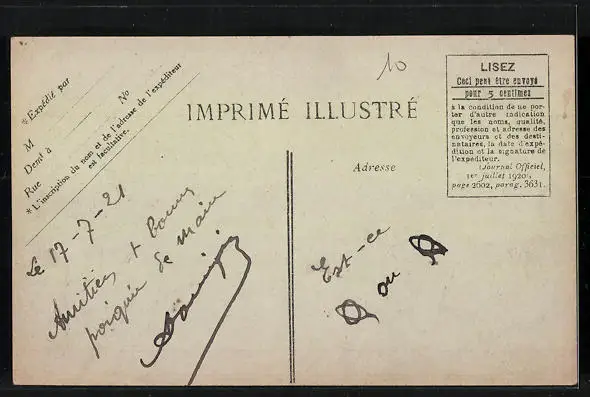 * Expédié par
M
Demt à
Rue
No
* L'inscription du nom et de l'adresse de l'expéditeur
est facultative.
IMPRIMÉ ILLUSTRÉ
10
LISEZ
Ceci peut être envoyé
pour 5 centimes
à la condition de ne por-
ter d'autre indication
que les noms, qualité,
profession et adresse des
envoyeurs et des desti-
nataires, la date d'expé-
dition et la signature de
l'expéditeur.
(Journal Officiel,
1er juillet 1920,
page 2602, parag. 3631.
Adresse
Le 17-7-21
Amitiés + bonne
poignée de main
Est-ce
ou